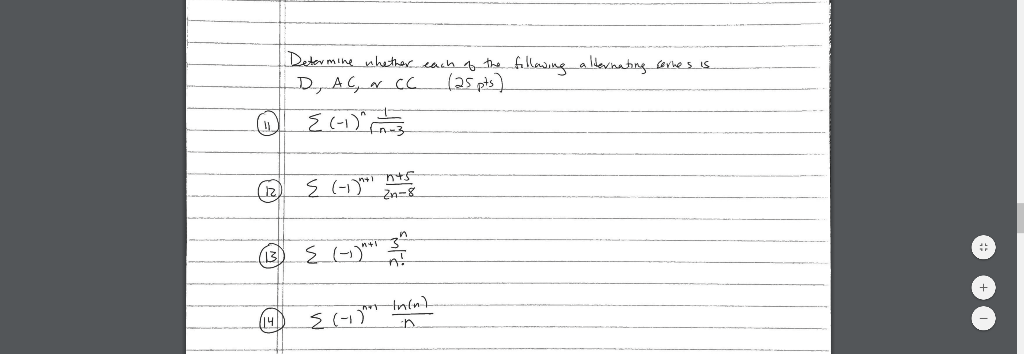 Determine whether each of the following alternating series is
D, AC, or CC (25 pts)
11 Σ (-1)^n 1/√n-3
12 Σ (-1)^n+1 n+5/2n-8
13 Σ (-1)^n+1 3^n/n!
14 Σ (-1)^n+1 ln(n)/n